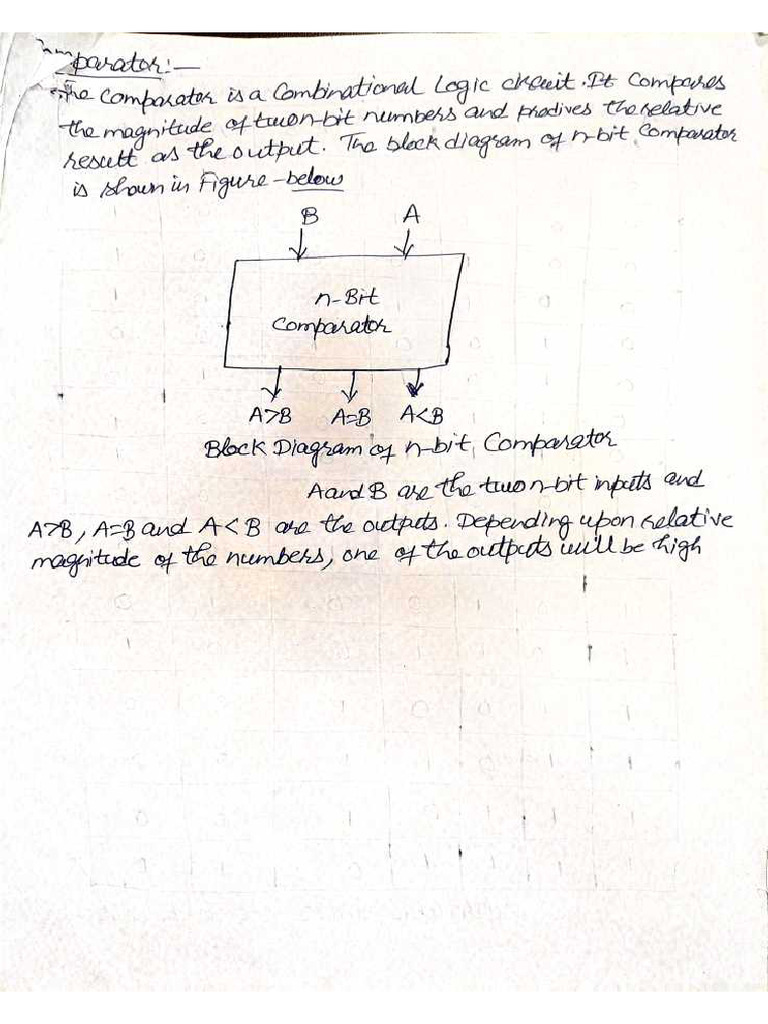 Comparator:—
The Comparator is a Combinational Logic circuit. It Compares
the magnitude of two n-bit numbers and prodives the relative
result as the output. The block diagram of n-bit Comparator
is shown in Figure-below
B A
n-Bit
Comparator
A>B A=B A<B
Block Diagram of n-bit Comparator
A and B are the two n-bit inputs and
A>B, A=B and A<B are the outputs. Depending upon relative
magnitude of the numbers, one of the outputs will be high